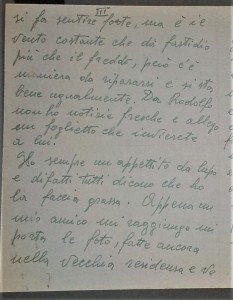 III
si fa sentire forte, ma è il
vento costante che dà fastidio
più che il freddo, però c'è
maniera da ripararsi e si sta
bene ugualmente. Da Rodolfo
non ho notizie fresche e allego
un foglietto che inoltrerete
a lui.
Ho sempre un appetito da lupo
e difatti tutti dicono che ho
la faccia grassa. Appena un
mio amico mi raggiunge mi
porta le foto, fatte ancora
nella vecchia residenza e ve